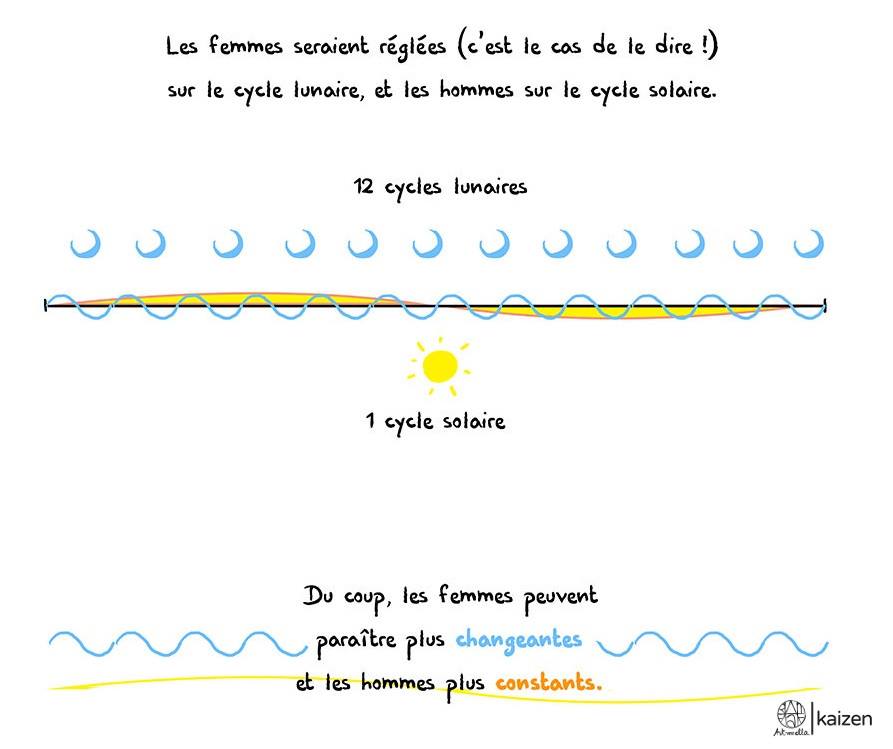 Les femmes seraient réglées (c'est le cas de le dire !)
sur le cycle lunaire, et les hommes sur le cycle solaire.
12 cycles lunaires
1 cycle solaire
Du coup, les femmes peuvent
paraître plus changeantes
et les hommes plus constants.
Art-mella
kaizen